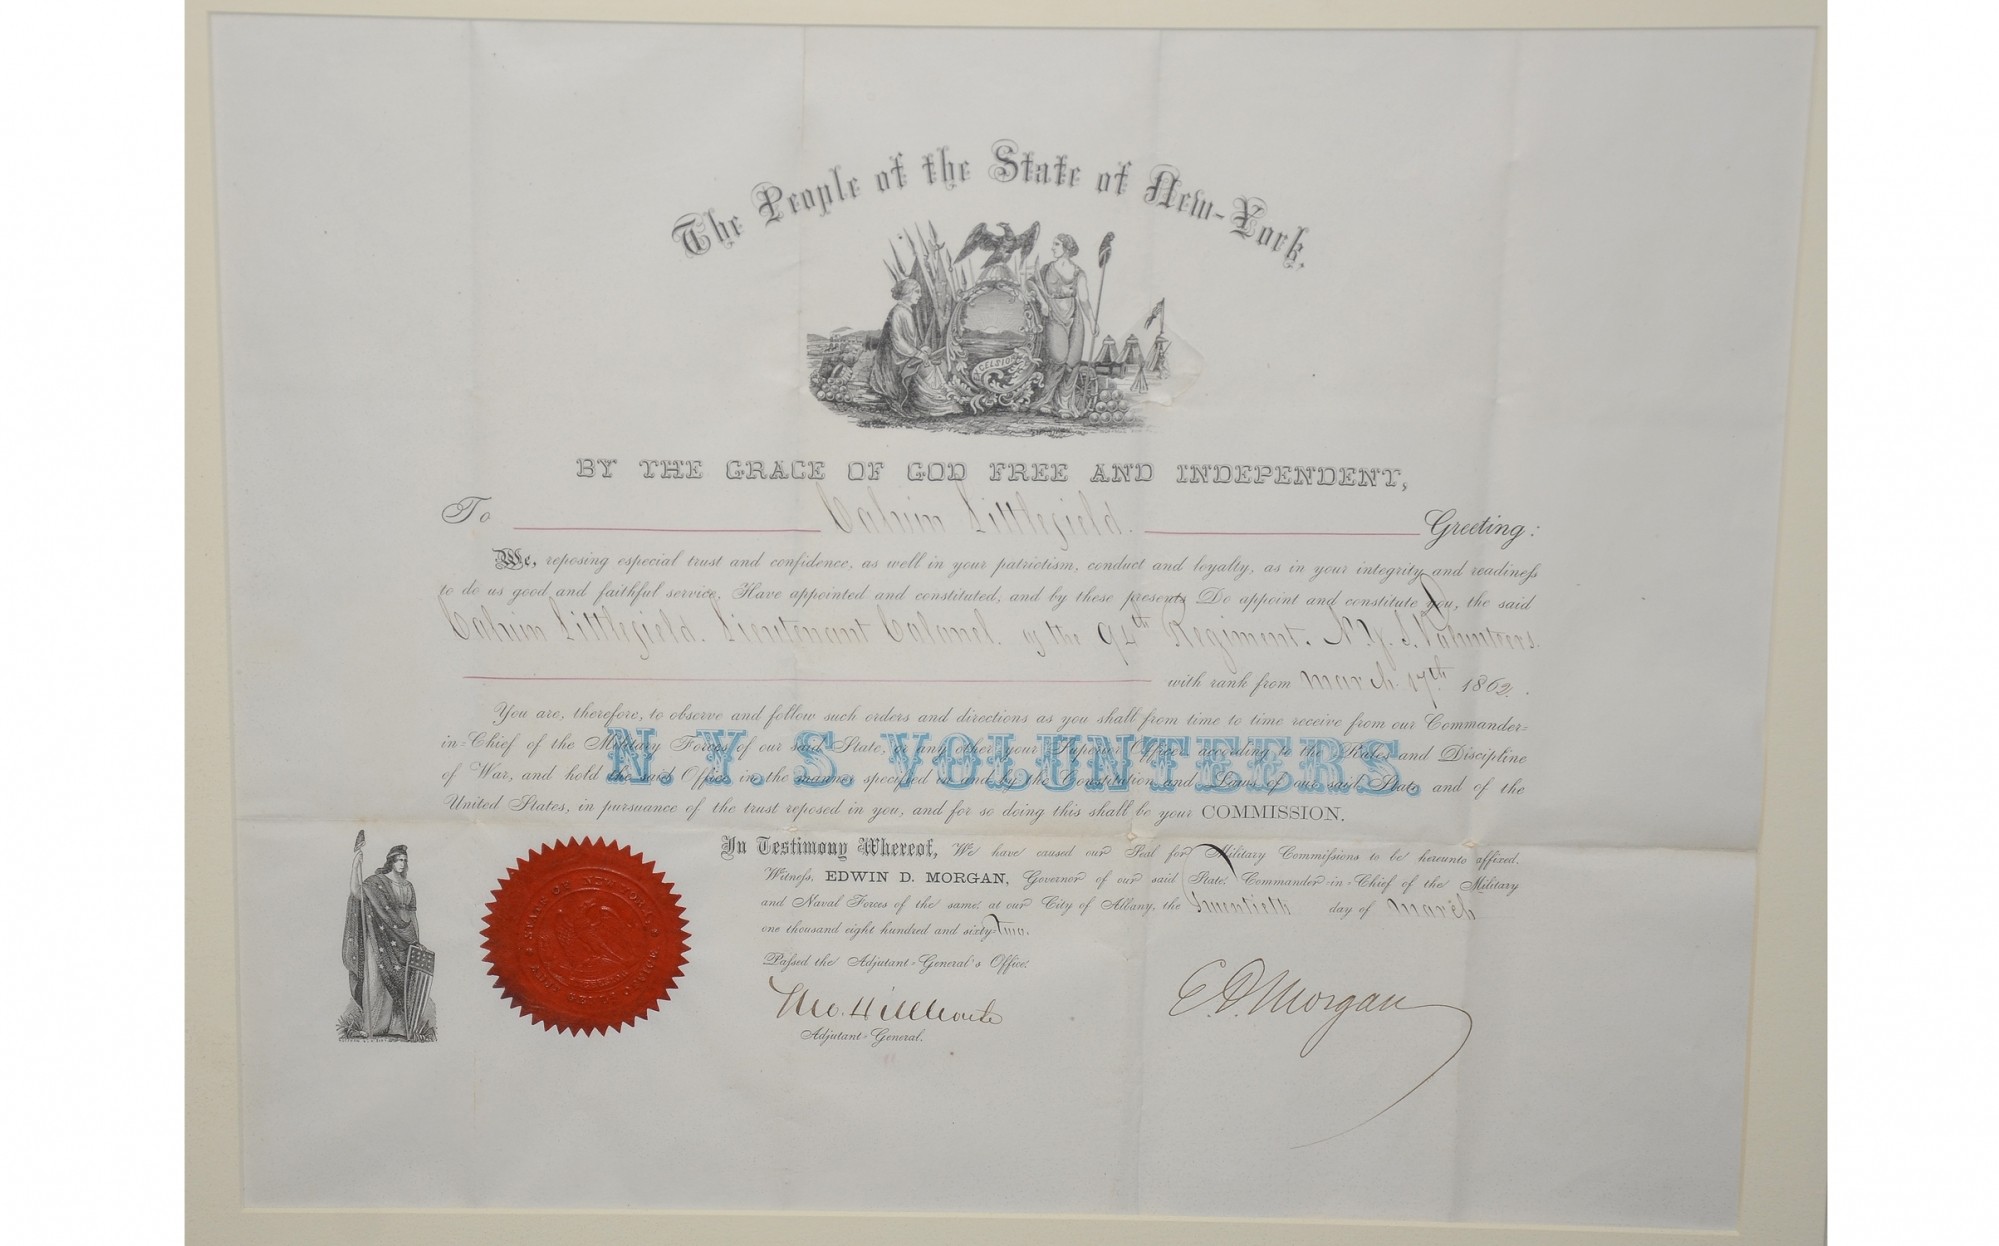 The People of the State of New-York.
EXCELSIOR
BY THE GRACE OF GOD FREE AND INDEPENDENT,
To Calvin Littlefield. Greeting:
We, reposing especial trust and confidence, as well in your patriotism, conduct and loyalty, as in your integrity and readiness
to do us good and faithful service, Have appointed and constituted, and by these presents Do appoint and constitute you, the said
Calvin Littlefield. Lieutenant Colonel. of the 94th Regiment. N. Y. S. Volunteers.
with rank from March 17th 1862.
You are, therefore, to observe and follow such orders and directions as you shall from time to time receive from our Commander-
in-Chief of the Military Forces of our said State, or any other your Superior Officer according to the Rules and Discipline
N. Y. S. VOLUNTEERS.
of War, and hold the said Office in the manner specified in and by the Constitution and Laws of our said State and of the
United States, in pursuance of the trust reposed in you, and for so doing this shall be your COMMISSION.
In Testimony Whereof, We have caused our Seal for Military Commissions to be hereunto affixed.
Witness, EDWIN D. MORGAN, Governor of our said State, Commander-in-Chief of the Military
and Naval Forces of the same, at our City of Albany, the Twentieth day of March
one thousand eight hundred and sixty-Two.
STATE OF NEW YORK
OFFICE
Passed the Adjutant-General's Office.
Tho. Hillhouse
E. D. Morgan
Adjutant-General.